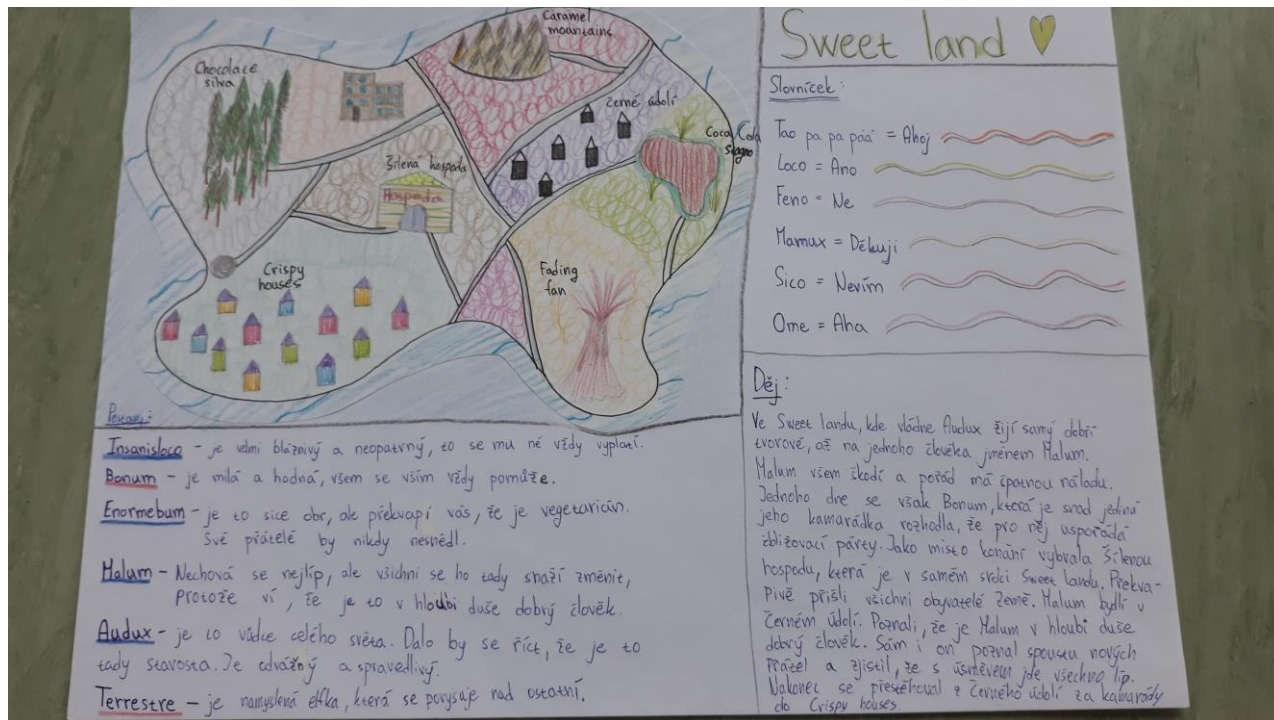 Caramel
mountains
Chocolate
silva
Černé údolí
Coca Cola
stagno
Šílená hospoda
Hospoda
Crispy
houses
Fading
fan
Sweet land
Slovníček:
Tao pa pa páá = Ahoj
Loco = Ano
Feno = Ne
Mamux = Děkuji
Sico = Nevím
Ome = Aha
Postavy:
Insanisloco - je velmi bláznivý a neopatrný, to se mu né vždy vyplatí.
Bonum - je milá a hodná, všem se vším vždy pomůže.
Enormebum - je to sice obr, ale překvapí vás, že je vegetarián.
Své přátelé by nikdy nesnědl.
Malum - Nechová se nejlíp, ale všichni se ho tady snaží změnit,
protože ví, že je to v hloubi duše dobrý člověk.
Audux - je to vůdce celého světa. Dalo by se říct, že je to
tady starosta. Je odvážný a spravedlivý.
Terrestre - je namyslená elfka, která se povyšuje nad ostatní.
Děj:
Ve Sweet landu, kde vládne Audux žijí samý dobří
tvorové, až na jednoho člověka jménem Malum.
Malum všem škodí a pořád má špatnou náladu.
Jednoho dne se však Bonum, která je snad jediná
jeho kamarádka rozhodla, že pro něj uspořádá
sbližovací párty. Jako místo konání vybrala Šílenou
hospodu, která je v samém srdci Sweet landu. Překva-
pivě přišli všichni obyvatelé Země. Malum bydlí v
Černém údolí. Poznali, že je Malum v hloubi duše
dobrý člověk. Sám i on poznal spoustu nových
přátel a zjistil, že s úsměvem jde všechno líp.
Nakonec se přestěhoval z Černého údolí za kamarády
do Crispy houses.